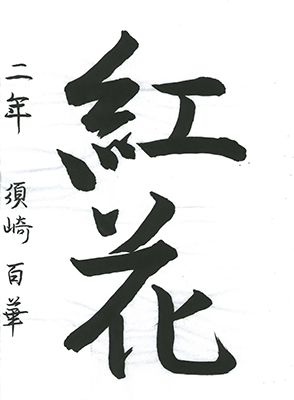 紅花
二年 須崎 百華